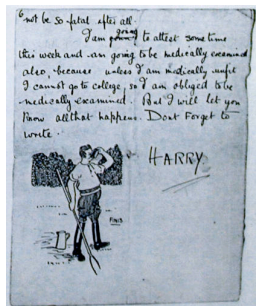 6
not be so fatal after all.
I am going to attest some time
this week and am going to be medically examined
also, because unless I am medically unfit
I cannot go to college, so I am obliged to be
medically examined. But I will let you
know all that happens. Dont forget to
write.
HARRY
FINIS